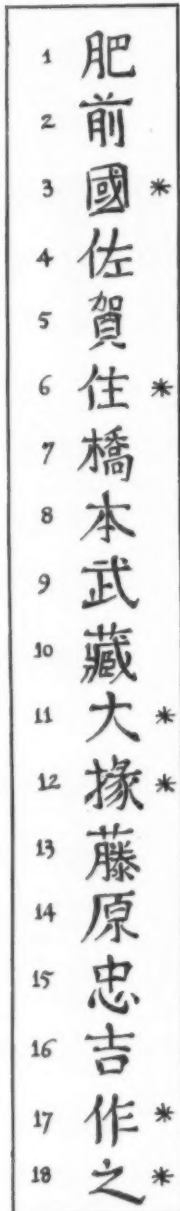 1 肥
2 前
3 國 *
4 佐
5 賀
6 住 *
7 橋
8 本
9 武
10 藏
11 大 *
12 掾 *
13 藤
14 原
15 忠
16 吉
17 作 *
18 之 *